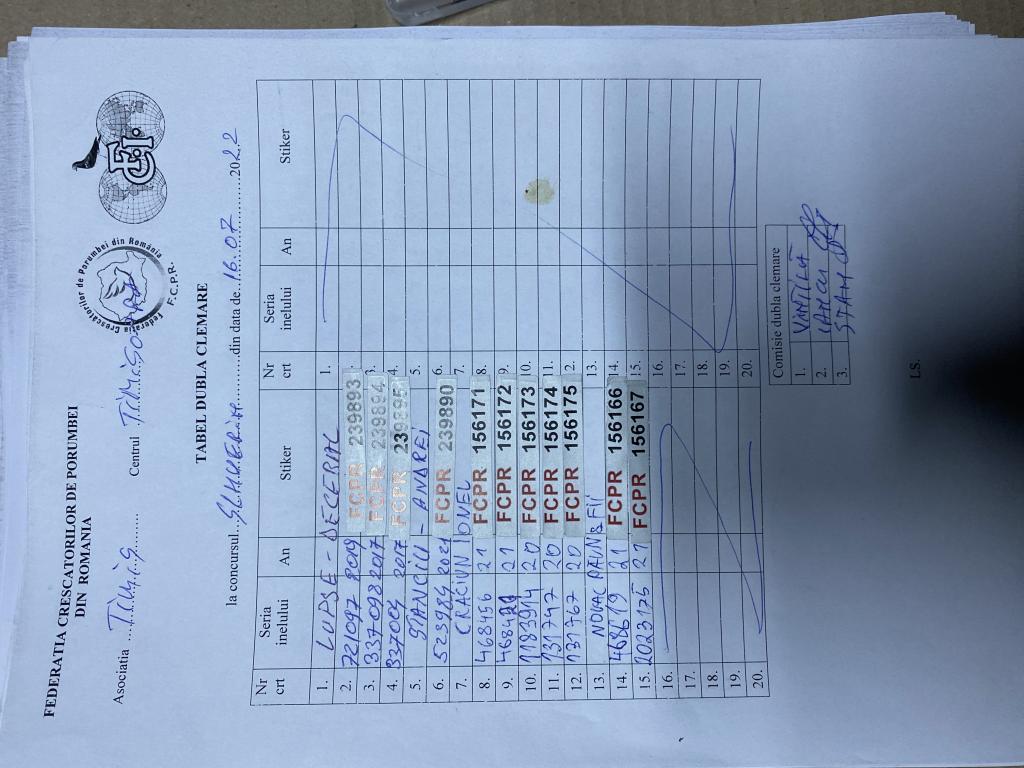 FEDERATIA CRESCATORILOR DE PORUMBEI
DIN ROMANIA
Asociatia ...TIMIȘ........ Centrul .TIMIȘOARA
Federatia Crescătorilor de Porumbei din România
F.C.P.R.
FCI
TABEL DUBLA CLEMARE
la concursul...............din data de..16.07..........2022
Nr crt Seria inelului An Stiker Nr crt Seria inelului An Stiker
1. LUPSE - DECEBAL 1.
2. 721097 2019 FCPR 239893
3. 337098 2017 FCPR 239894 3.
4. 337004 2017 FCPR 239895 4.
5. STANCIU - ANDREI 5.
6. 523984 2021 FCPR 239890 6.
7. CRACIUN IONEL 7.
8. 468456 21 FCPR 156171 8.
9. 21 FCPR 156172 9.
10. 1183914 20 FCPR 156173 10.
11. 131747 20 FCPR 156174 11.
12. 131767 20 FCPR 156175 2.
13. NOVAC PAUN & FII 13.
14. 468619 21 FCPR 156166 14.
15. 2023175 21 FCPR 156167 15.
16. 16.
17. 17.
18. 18.
19. 19.
20. 20.
Comisie dubla clemare
1. VINTILĂ
2. IANCU
3. STAN
LS.